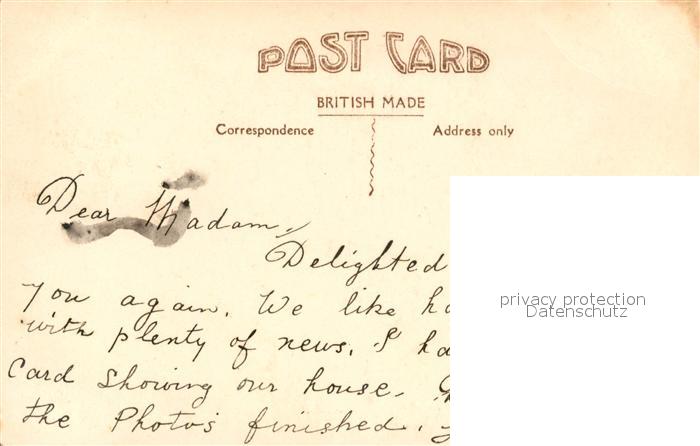 POST CARD
BRITISH MADE
Correspondence
Address only
Dear Madam,
Delighted
you again. We like
with plenty of news. I
card showing our house.
the Photo's finished.
privacy protection
Datenschutz